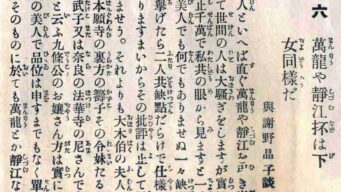 六　萬龍や靜江抔は下
女同樣だ
與謝野晶子談
人といへば直ぐ萬龍や靜江お引き
て世間の人は大騷ぎをしますが實
止千萬で私共の眼から見ますと
美人でも何でもありませぬ一々缺
擧げたら二人共缺點だらけで仕樣
りますまいか、その批評は止し
ませう。それよりも大木伯の夫人
本願寺の裏方の籌子その令妹たる
武子又は奈良の法華寺の尼さんで
と云ふ九條公のお孃さん方は實に
の美人で品位は申すまでもなく單
そのものに於ても萬龍とか靜江な